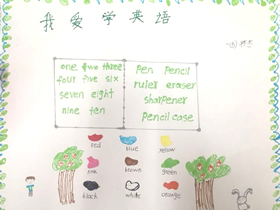 我爱学英语
one two three
four five six
seven eight
nine ten
pen pencil
ruler eraser
sharpener
pencil case
red blue yellow
pink brown green
black white orange